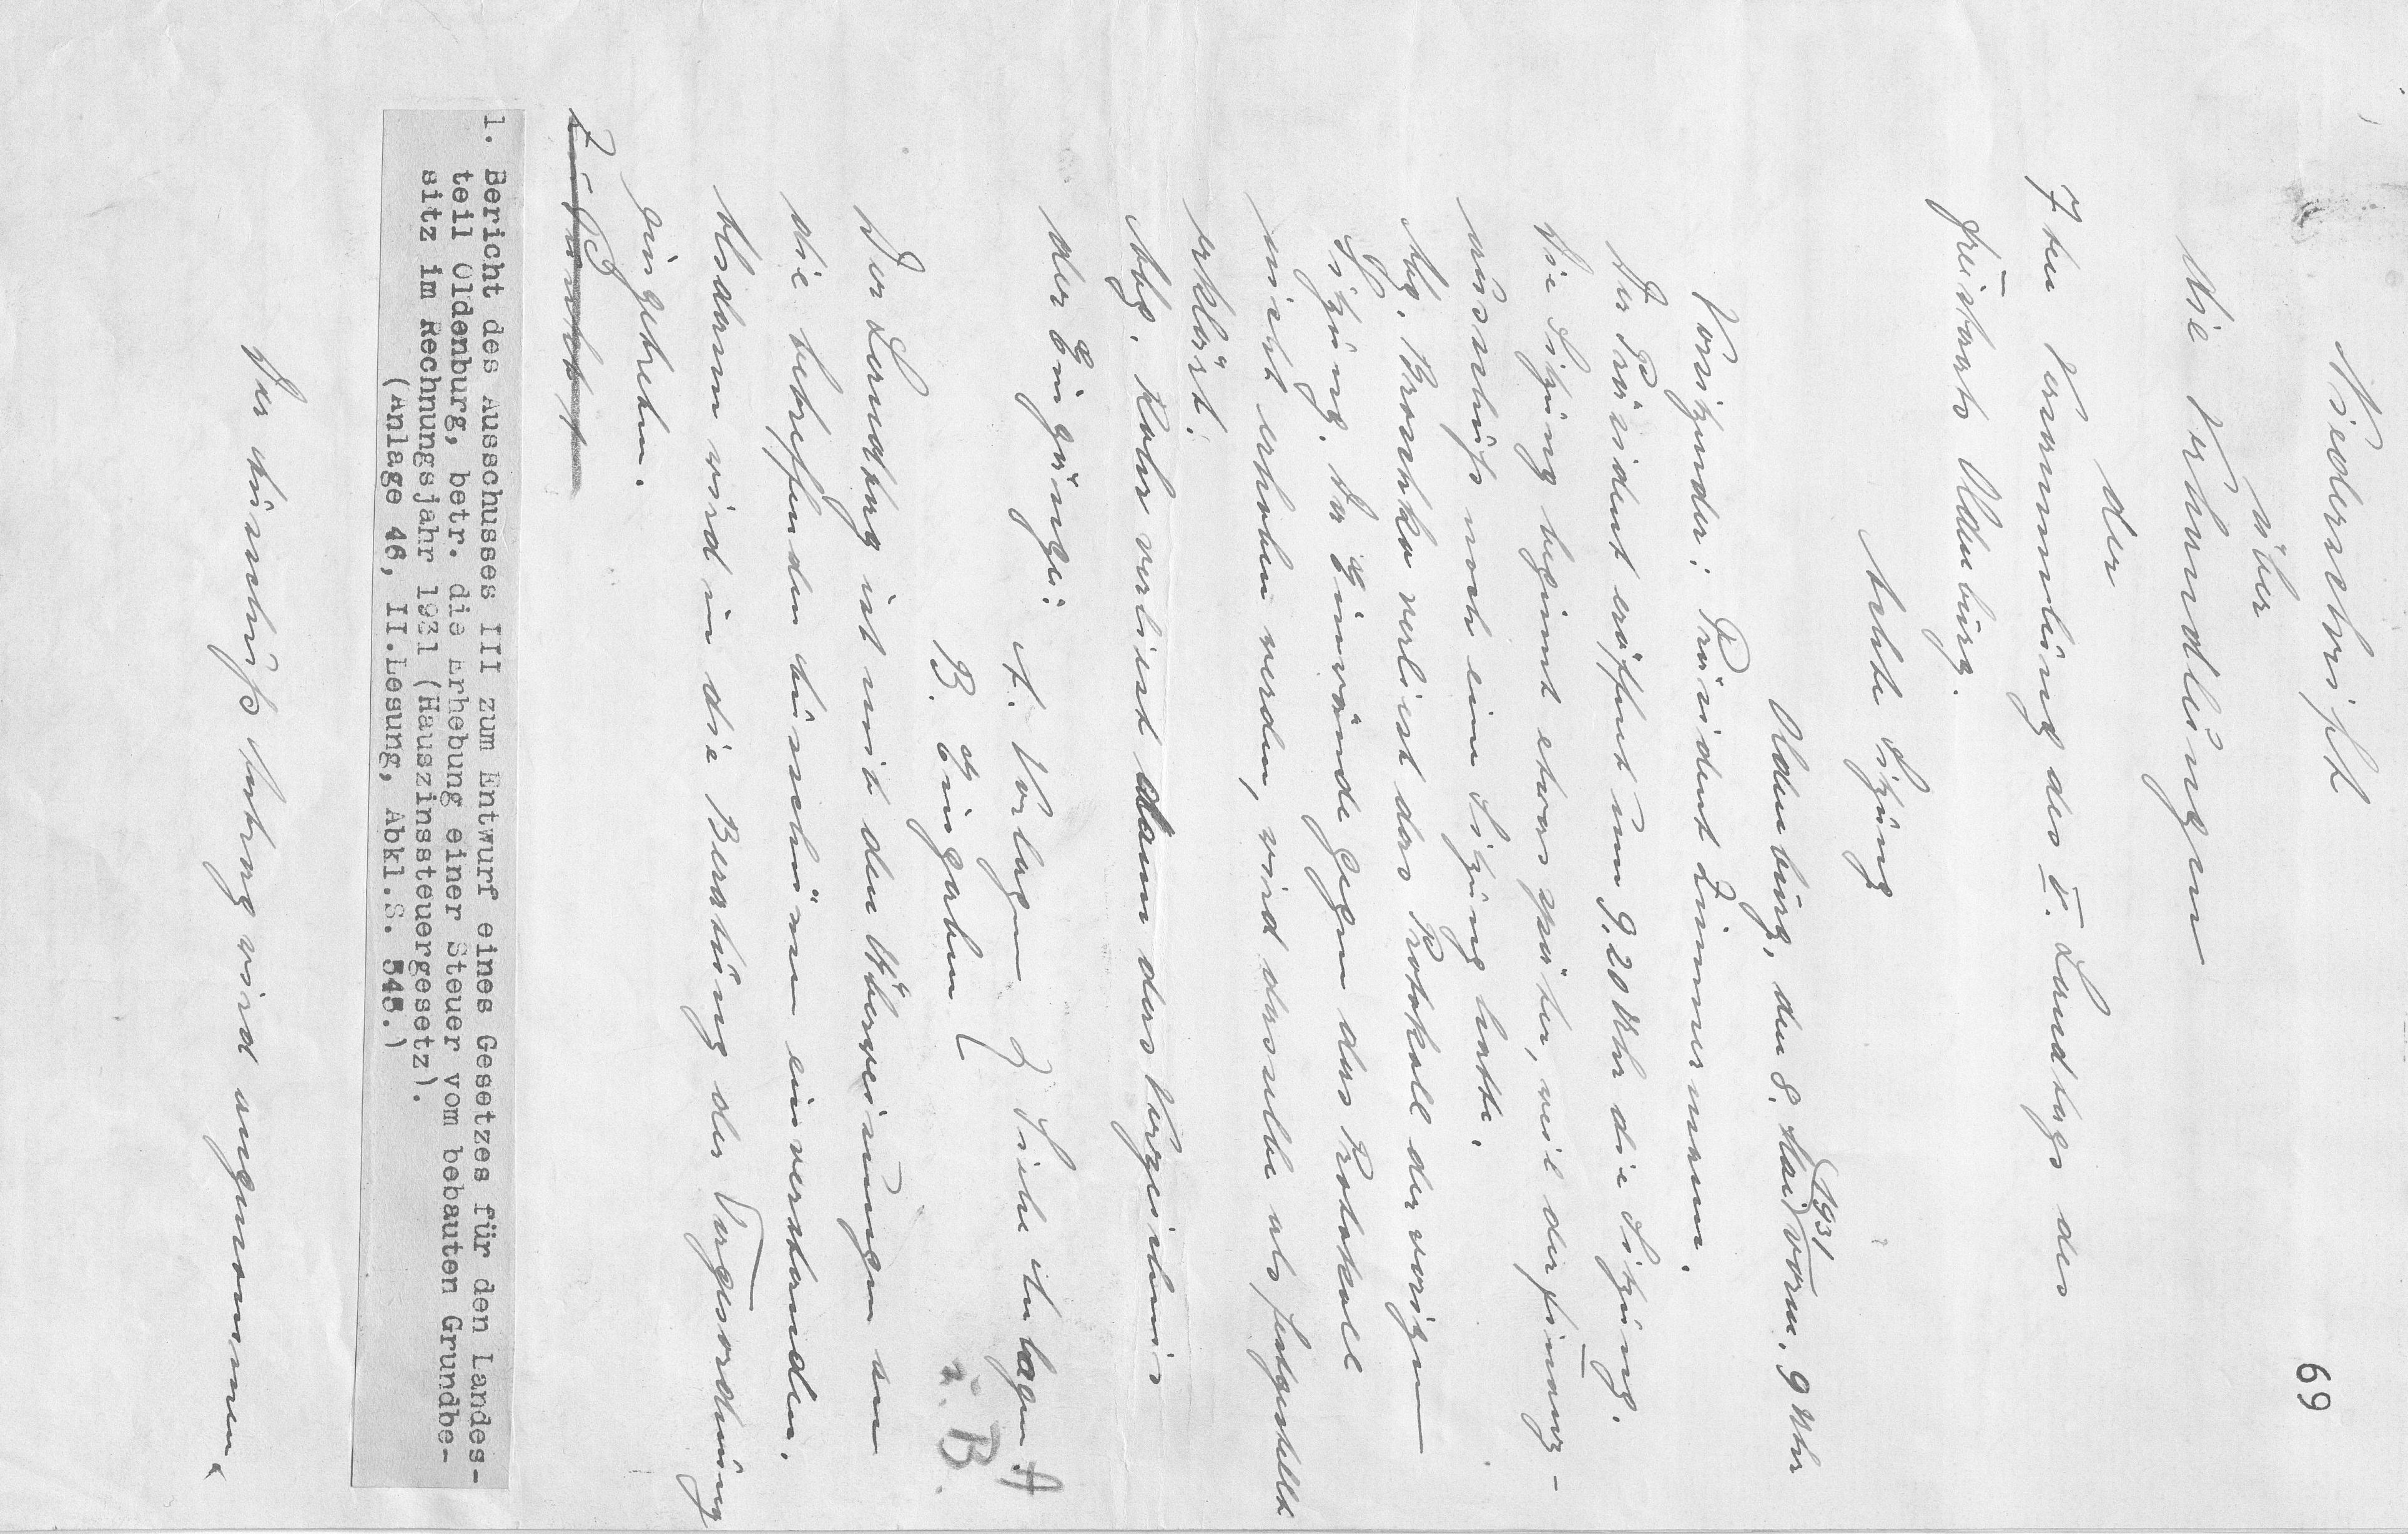 69
Niederschrift
über
die Verhandlungen
der
7ten Versammlung des V. Landtags des
Freistaats Oldenburg.
Achte Sitzung
Oldenburg, den 8. Mai 1931 vorm. 9 Uhr
Vorsitzender: Präsident Zimmermann.
Der Präsident eröffnet um 9,20 Uhr die Sitzung.
Die Sitzung beginnt etwas später, weil der Finanz-
ausschuß noch eine Sitzung hatte.
Abg. Broschko verliest das Protokoll der vorigen
Sitzung. Da Einwände gegen das Protokoll
nicht erhoben werden, wird dasselbe als festgestellt
erklärt.
Abg. Rohr verliest dann das Verzeichnis
der Eingänge: A. Vorlagen } Siehe Anlagen A
B. Eingaben } u. B.
Der Landtag ist mit den Überweisungen an
die betreffenden Ausschüsse einverstanden.
Alsdann wird in die Beratung der Tagesordnung
eingetreten.
1. Bericht des Ausschusses III zum Entwurf eines Gesetzes für den Landes-
teil Oldenburg, betr. die Erhebung einer Steuer vom bebauten Grundbe-
sitz im Rechnungsjahr 1931 (Hauszinssteuergesetz).
(Anlage 46, II.Lesung, Abkl.S. 545.)
Der Ausschuß Antrag wird angenommen.